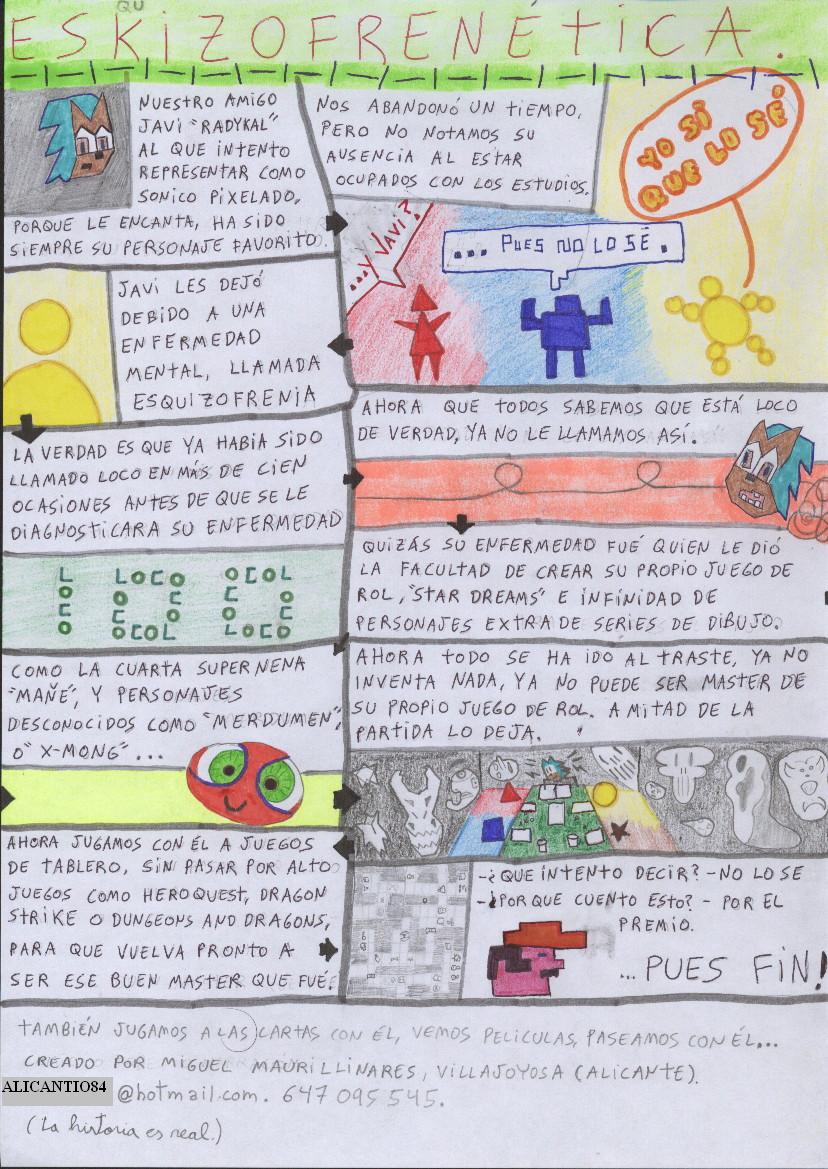 QU
ESKIZOFRENÉTICA.
NUESTRO AMIGO
JAVI "RADYKAL"
AL QUE INTENTO
REPRESENTAR COMO
SONICO PIXELADO,
PORQUE LE ENCANTA, HA SIDO
SIEMPRE SU PERSONAJE FAVORITO.
NOS ABANDONÓ UN TIEMPO,
PERO NO NOTAMOS SU
AUSENCIA AL ESTAR
OCUPADOS CON LOS ESTUDIOS.
...Y JAVI?
... PUES NO LO SÉ.
YO SÍ
QUE LO SÉ
JAVI LES DEJÓ
DEBIDO A UNA
ENFERMEDAD
MENTAL, LLAMADA
ESQUIZOFRENIA
LA VERDAD ES QUE YA HABIA SIDO
LLAMADO LOCO EN MÁS DE CIEN
OCASIONES ANTES DE QUE SE LE
DIAGNOSTICARA SU ENFERMEDAD
L LOCO OCOL
O C C O
C O O C
O OCOL LOCO
AHORA QUE TODOS SABEMOS QUE ESTÁ LOCO
DE VERDAD, YA NO LE LLAMAMOS ASÍ.
QUIZÁS SU ENFERMEDAD FUÉ QUIEN LE DIÓ
LA FACULTAD DE CREAR SU PROPIO JUEGO DE
ROL, "STAR DREAMS" E INFINIDAD DE
PERSONAJES EXTRA DE SERIES DE DIBUJO.
COMO LA CUARTA SUPERNENA
"MAÑE", Y PERSONAJES
DESCONOCIDOS COMO "MERDUMEN",
O "X-MONG"...
AHORA TODO SE HA IDO AL TRASTE, YA NO
INVENTA NADA, YA NO PUEDE SER MASTER DE
SU PROPIO JUEGO DE ROL. A MITAD DE LA
PARTIDA LO DEJA.
AHORA JUGAMOS CON ÉL A JUEGOS
DE TABLERO, SIN PASAR POR ALTO
JUEGOS COMO HEROQUEST, DRAGON
STRIKE O DUNGEONS AND DRAGONS,
PARA QUE VUELVA PRONTO A
SER ESE BUEN MASTER QUE FUÉ.
-¿QUE INTENTO DECIR? - NO LO SE
-¿PORQUE CUENTO ESTO? - POR EL
PREMIO.
... PUES FIN!
TAMBIÉN JUGAMOS A LAS CARTAS CON ÉL, VEMOS PELICULAS, PASEAMOS CON ÉL...
CREADO POR MIGUEL MAURI LLINARES, VILLAJOYOSA (ALICANTE).
ALICANTIO84 @hotmail.com. 647 095 545.
(La historia es real.)